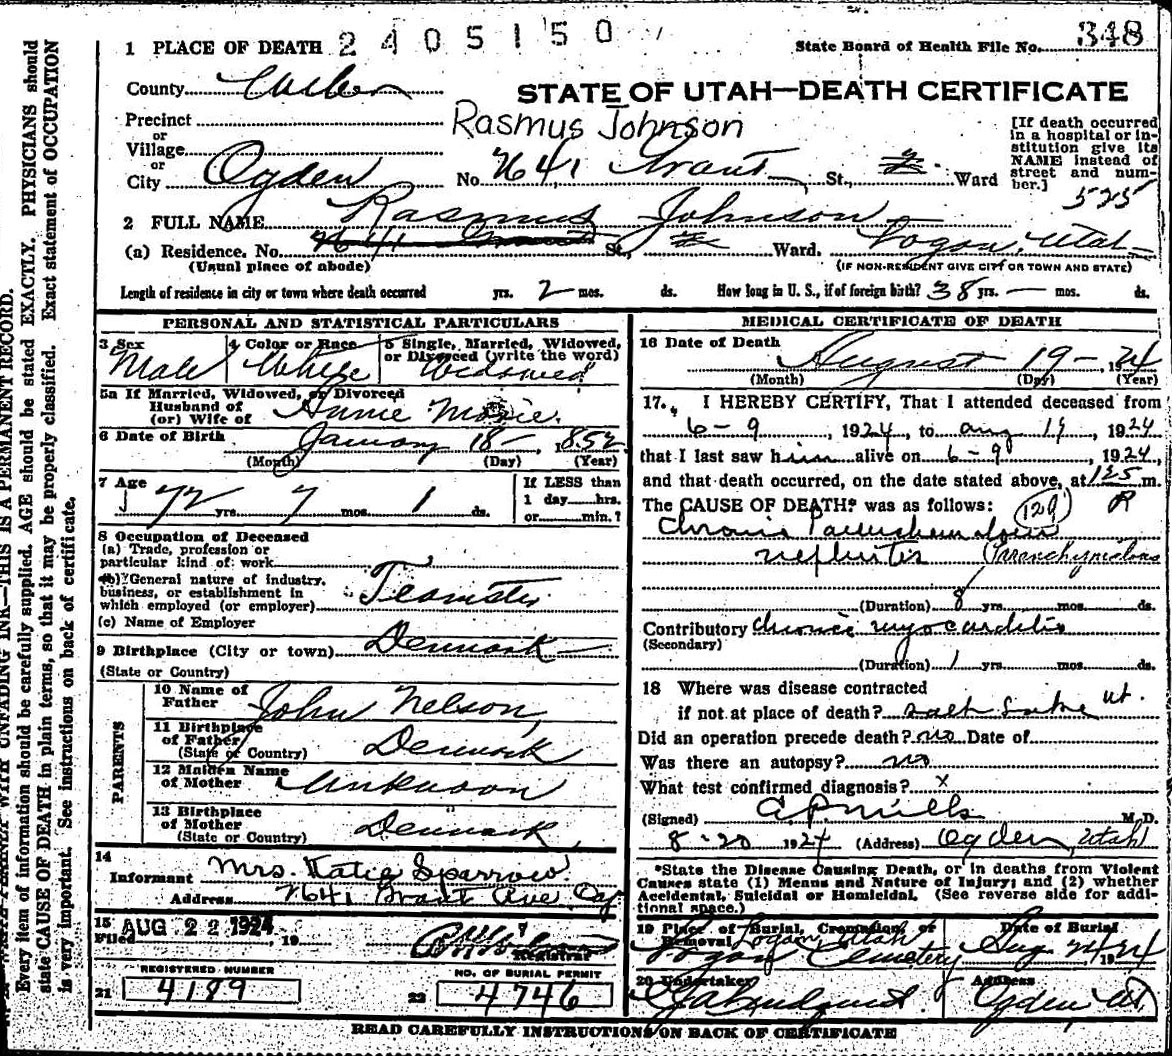 1 PLACE OF DEATH 2405150
State Board of Health File No. 348
County Weber
STATE OF UTAH—DEATH CERTIFICATE
Precinct
Rasmus Johnson
or
Village
or
City Ogden No. 2641 Grant St, 2 Ward
[If death occurred
in a hospital or in-
stitution give its
NAME instead of
street and num-
ber.]
525
2 FULL NAME Rasmus Johnson
(a) Residence. No. 2641 Grant St, 2 Ward. Logan, Utah
(Usual place of abode) (IF NON-RESIDENT GIVE CITY OR TOWN AND STATE)
Length of residence in city or town where death occurred yrs. 2 mos. ds. How long in U. S., if of foreign birth? 38 yrs. — mos. ds.
PERSONAL AND STATISTICAL PARTICULARS
3 Sex
Male
4 Color or Race
White
5 Single, Married, Widowed,
or Divorced (write the word)
Widowed
5a If Married, Widowed, or Divorced
Husband of
(or) Wife of Annie Marie.
6 Date of Birth January 18 - 1852
(Month) (Day) (Year)
7 Age
72 yrs. 7 mos. 1 ds.
If LESS than
1 day hrs.
or min.?
8 Occupation of Deceased
(a) Trade, profession or
particular kind of work
(b) General nature of industry,
business, or establishment in
which employed (or employer) Teamster
(c) Name of Employer
9 Birthplace (City or town) Denmark
(State or Country)
PARENTS
10 Name of
Father John Nelson,
11 Birthplace
of Father Denmark
(State or Country)
12 Maiden Name
of Mother Unknown
13 Birthplace
of Mother Denmark
(State or Country)
14
Informant Mrs. Katie Sparrow
Address 2641 Grant Ave. Og
15 AUG 22 1924
Filed , 19
Registrar
REGISTERED NUMBER
21 4189
NO. OF BURIAL PERMIT
22 4746
MEDICAL CERTIFICATE OF DEATH
16 Date of Death
August 19 -, 1924
(Month) (Day) (Year)
17. I HEREBY CERTIFY, That I attended deceased from
6-9, 1924, to Aug 19, 1924
that I last saw him alive on 6-9, 1924,
and that death occurred, on the date stated above, at 125 m.
P
The CAUSE OF DEATH* was as follows: 129
Chronic
nephritis
(Duration) 8 yrs. mos. ds.
Contributory chronic myocarditis
(Secondary)
(Duration) 1 yrs. mos. ds.
18 Where was disease contracted
if not at place of death? Salt Lake Ut.
Did an operation precede death? no Date of
Was there an autopsy? no
What test confirmed diagnosis? x
(Signed) Mills M.D.
8-20 1924 (Address) Ogden, Utah
*State the Disease Causing Death, or in deaths from Violent
Causes state (1) Means and Nature of Injury; and (2) whether
Accidental, Suicidal or Homicidal. (See reverse side for addi-
tional space.)
19 Place of Burial, Cremation, or
Removal Logan Utah
Logan Cemetery
Date of Burial
Aug 24 1924
20 Undertaker
Address
Ogden Ut
READ CAREFULLY INSTRUCTIONS ON BACK OF CERTIFICATE
WITH UNFADING INK—THIS IS A PERMANENT RECORD.
Every item of information should be carefully supplied. AGE should be stated EXACTLY. PHYSICIANS should
state CAUSE OF DEATH in plain terms, so that it may be properly classified. Exact statement of OCCUPATION
is very important. See instructions on back of certificate.